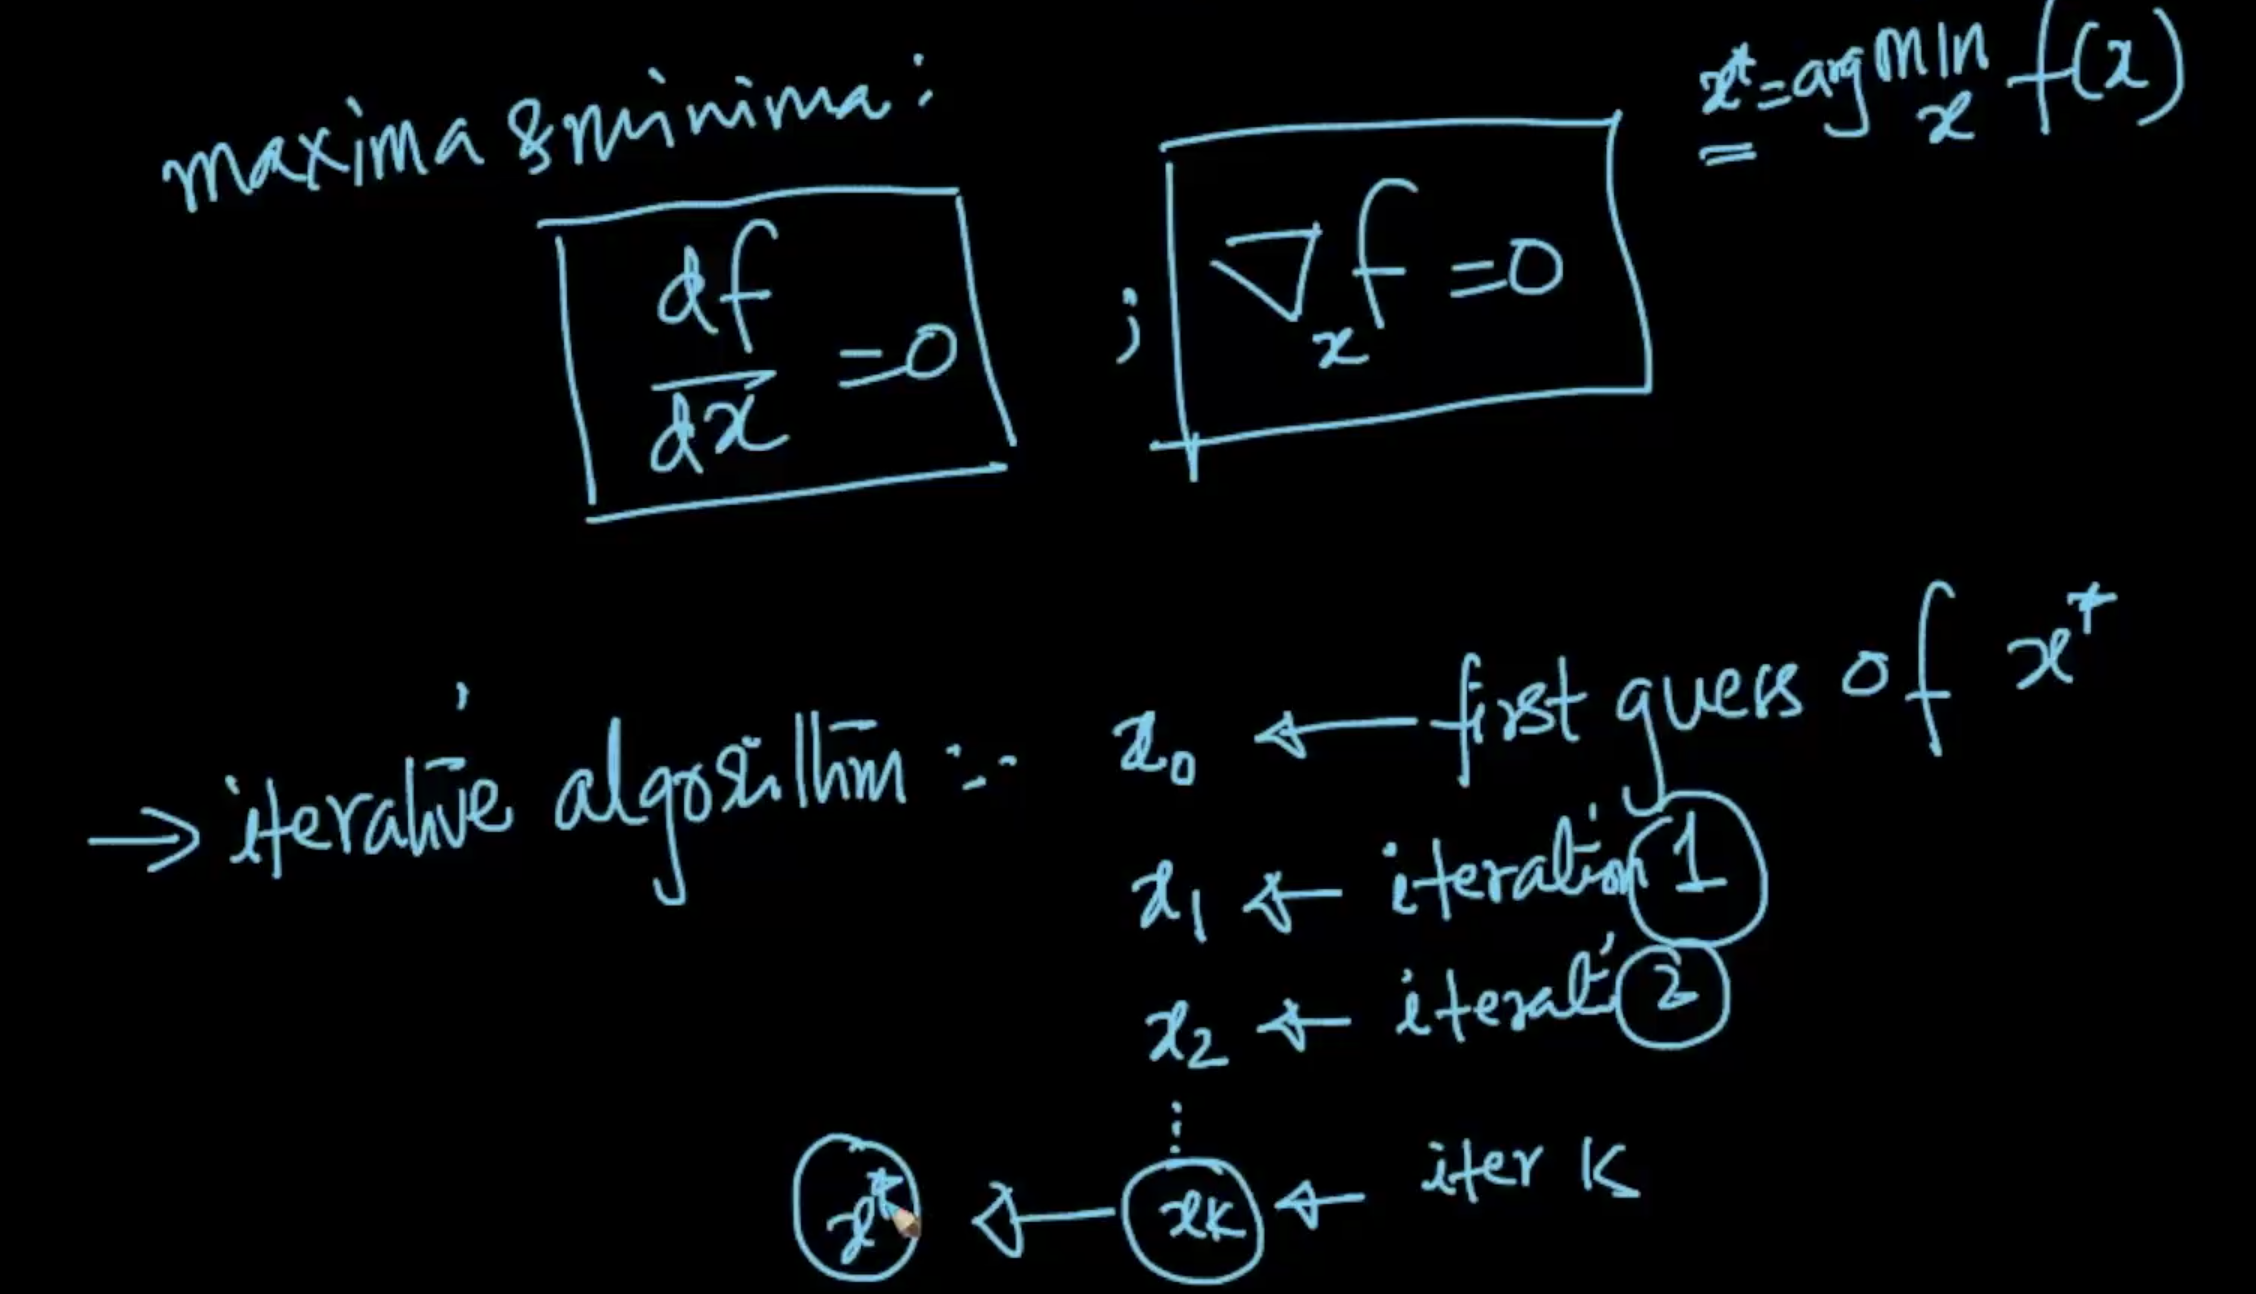 maxima & minima:
x* = arg min f(x)
x
df
dx = 0 ; ∇x f = 0
→ iterative algorithm :- x0 ← first guess of x*
x1 ← iteration 1
x2 ← iterati 2
⋮
x* ← xK ← iter K